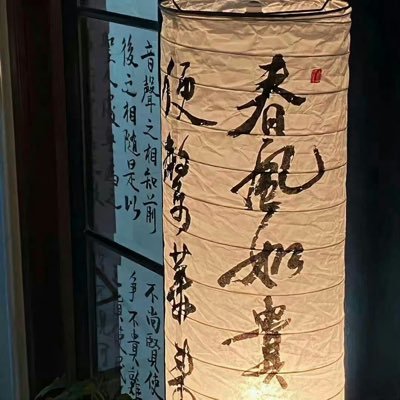 春風如貴
便繁華來
音聲之相和前
後之相隨是以
不尚賢使
爭不貴難